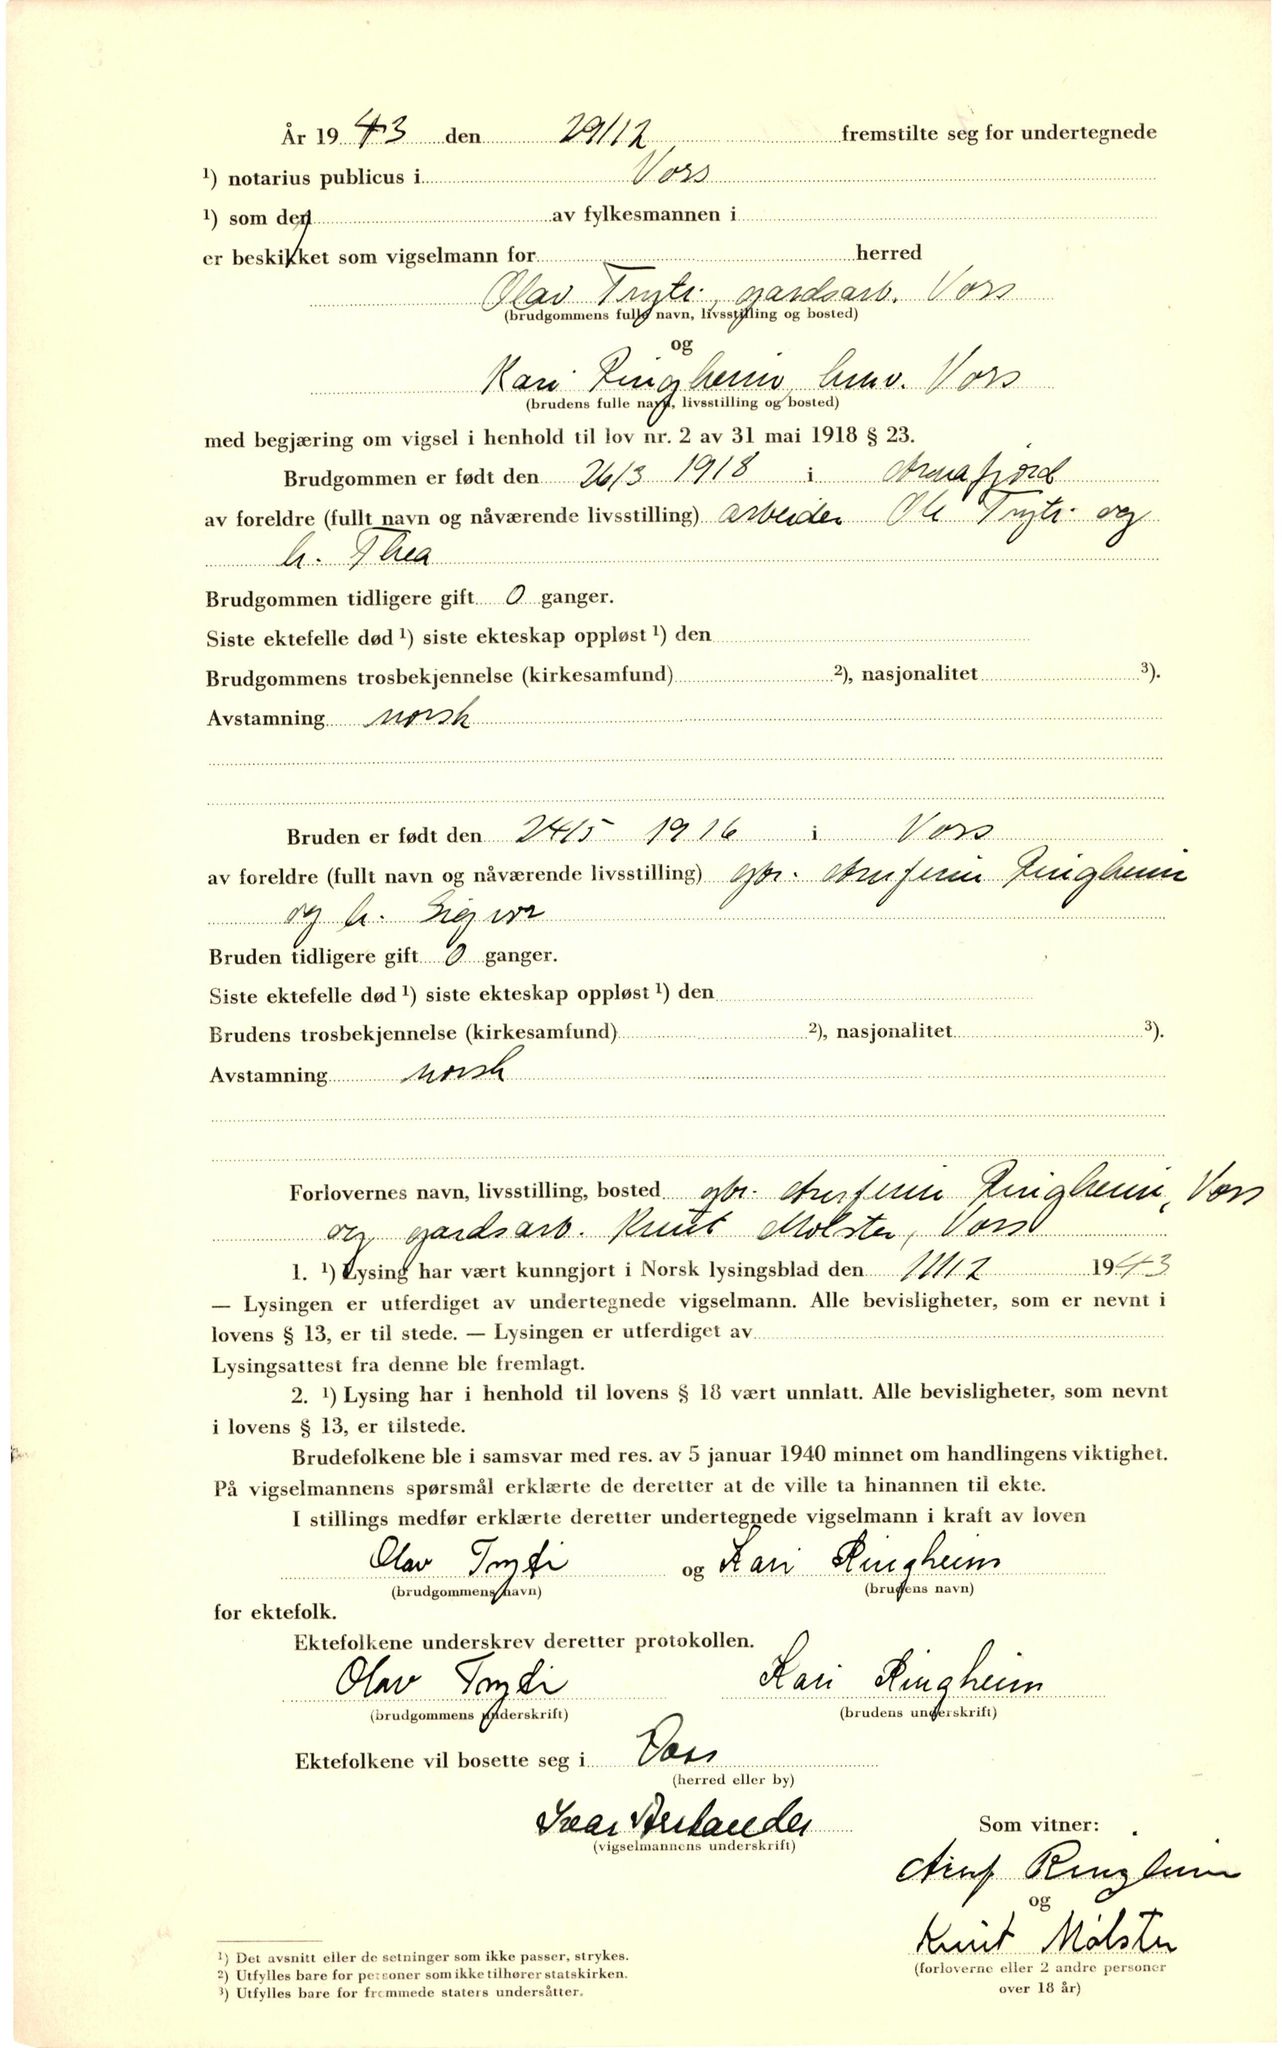 År 1943 den 29/12 fremstilte seg for undertegnede
¹) notarius publicus i Voss
¹) som den av fylkesmannen i
er beskikket som vigselmann for herred
Olav Tryti, gardsarb. Voss
(brudgommens fulle navn, livsstilling og bosted)
og
Kari Ringheim, hmv. Voss
(brudens fulle navn, livsstilling og bosted)
med begjæring om vigsel i henhold til lov nr. 2 av 31 mai 1918 § 23.
Brudgommen er født den 26/3 1918 i Arnafjord
av foreldre (fullt navn og nåværende livsstilling) arbeider Ole Tryti og
h. Thea
Brudgommen tidligere gift 0 ganger.
Siste ektefelle død ¹) siste ekteskap oppløst ¹) den
Brudgommens trosbekjennelse (kirkesamfund) ²), nasjonalitet ³).
Avstamning norsk
Bruden er født den 24/5 1916 i Voss
av foreldre (fullt navn og nåværende livsstilling) gbr. Ringheim
og h. Sigvor
Bruden tidligere gift 0 ganger.
Siste ektefelle død ¹) siste ekteskap oppløst ¹) den
Brudens trosbekjennelse (kirkesamfund) ²), nasjonalitet ³).
Avstamning norsk
Forlovernes navn, livsstilling, bosted gbr. Ringheim, Voss
og gardsarb. Knut Mølster, Voss
1. ¹) Lysing har vært kunngjort i Norsk lysingsblad den 11/12 1943
— Lysingen er utferdiget av undertegnede vigselmann. Alle bevisligheter, som er nevnt i
lovens § 13, er til stede. — Lysingen er utferdiget av
Lysingsattest fra denne ble fremlagt.
2. ¹) Lysing har i henhold til lovens § 18 vært unnlatt. Alle bevisligheter, som nevnt
i lovens § 13, er tilstede.
Brudefolkene ble i samsvar med res. av 5 januar 1940 minnet om handlingens viktighet.
På vigselmannens spørsmål erklærte de deretter at de ville ta hinannen til ekte.
I stillings medfør erklærte deretter undertegnede vigselmann i kraft av loven
Olav Tryti og Kari Ringheim
(brudgommens navn) (brudens navn)
for ektefolk.
Ektefolkene underskrev deretter protokollen.
Olav Tryti Kari Ringheim
(brudgommens underskrift) (brudens underskrift)
Ektefolkene vil bosette seg i Voss
(herred eller by)
Som vitner:
(vigselmannens underskrift)
Ringheim
og
Knut Mølster
(forloverne eller 2 andre personer
over 18 år)
¹) Det avsnitt eller de setninger som ikke passer, strykes.
²) Utfylles bare for personer som ikke tilhører statskirken.
³) Utfylles bare for fremmede staters undersåtter.